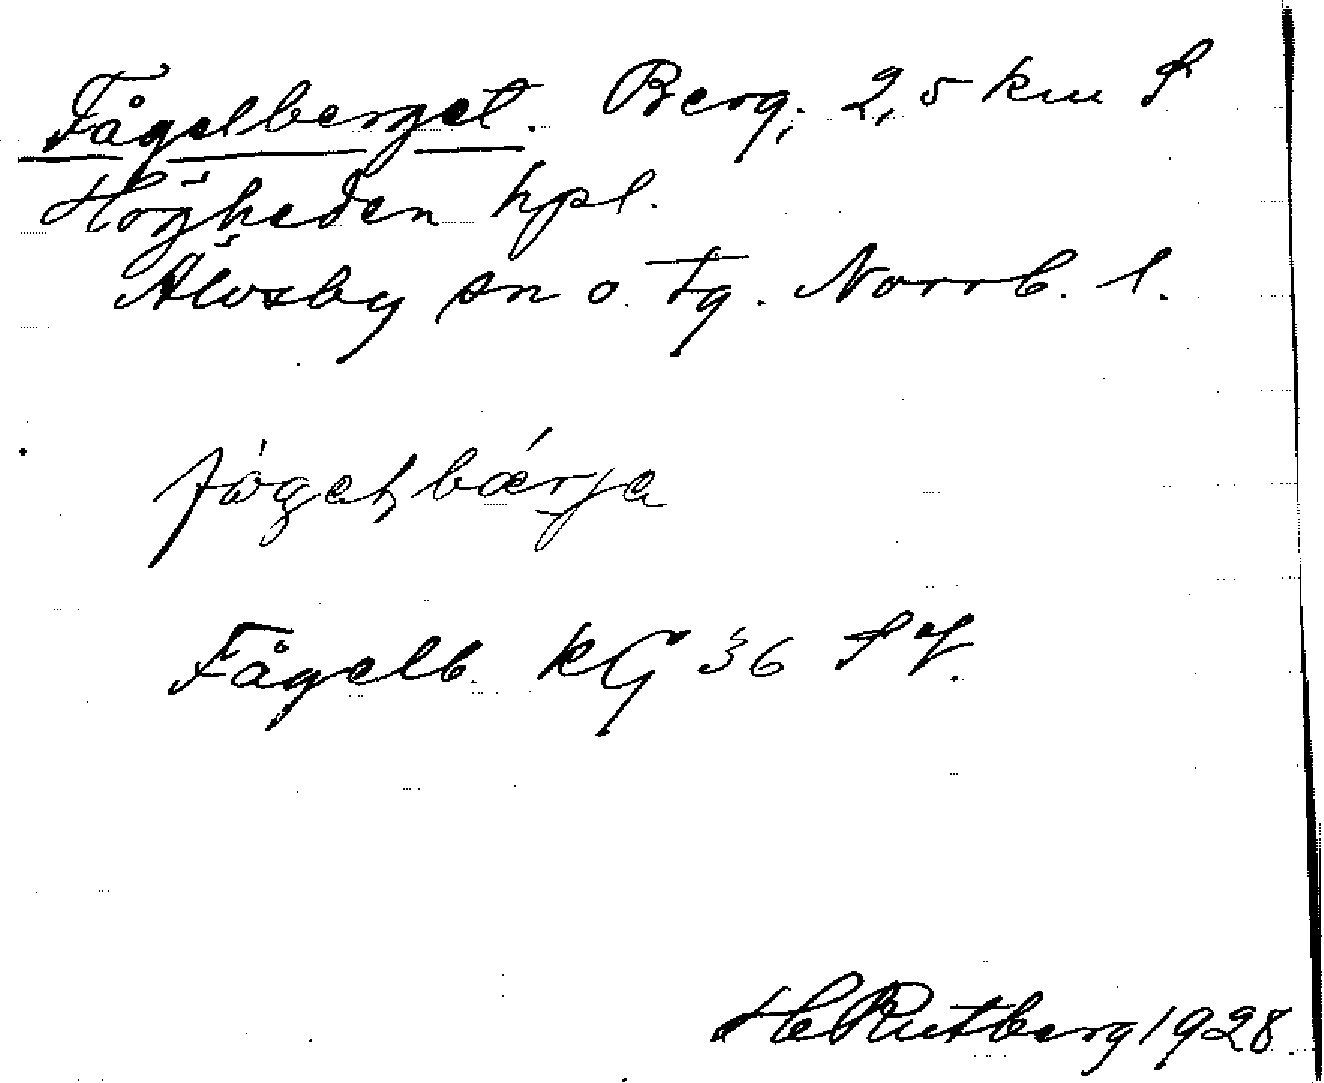 Fågelberget. Berg; 2,5 km S
Högheden hpl.
Älvsby sn o. tg. Norrb. l.
Fågelb. KG 36 SV.
H Rutberg 1928